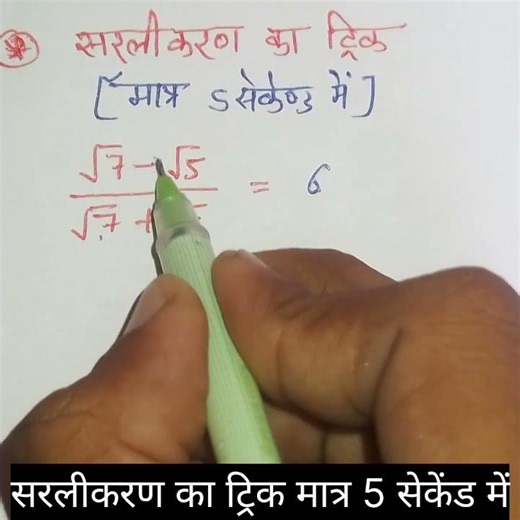 सरलीकरण का ट्रिक
[ मात्र 5 सेकेण्ड में ]
√7 - √5
√7 + = 6
सरलीकरण का ट्रिक मात्र 5 सेकेंड में